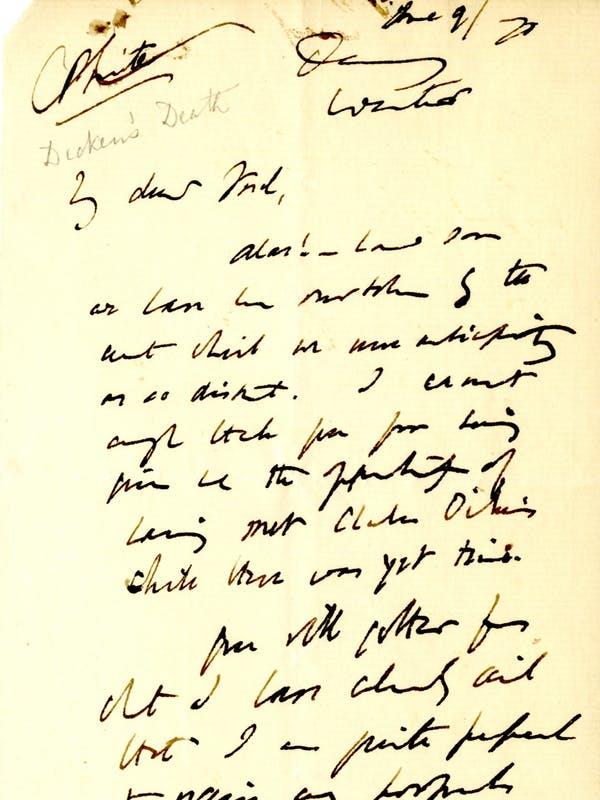 June 9/70
Private Deanery
Westmster
Dicken's Death
My dear
Alas! – how soon
we have been overtaken by the
event which we were anticipating
as so distant. I cannot
enough thank you for having
given me the opportunity of
having met Charles Dickens
while there was yet time.
You will gather from
what I have already said
that I am quite prepared
to any